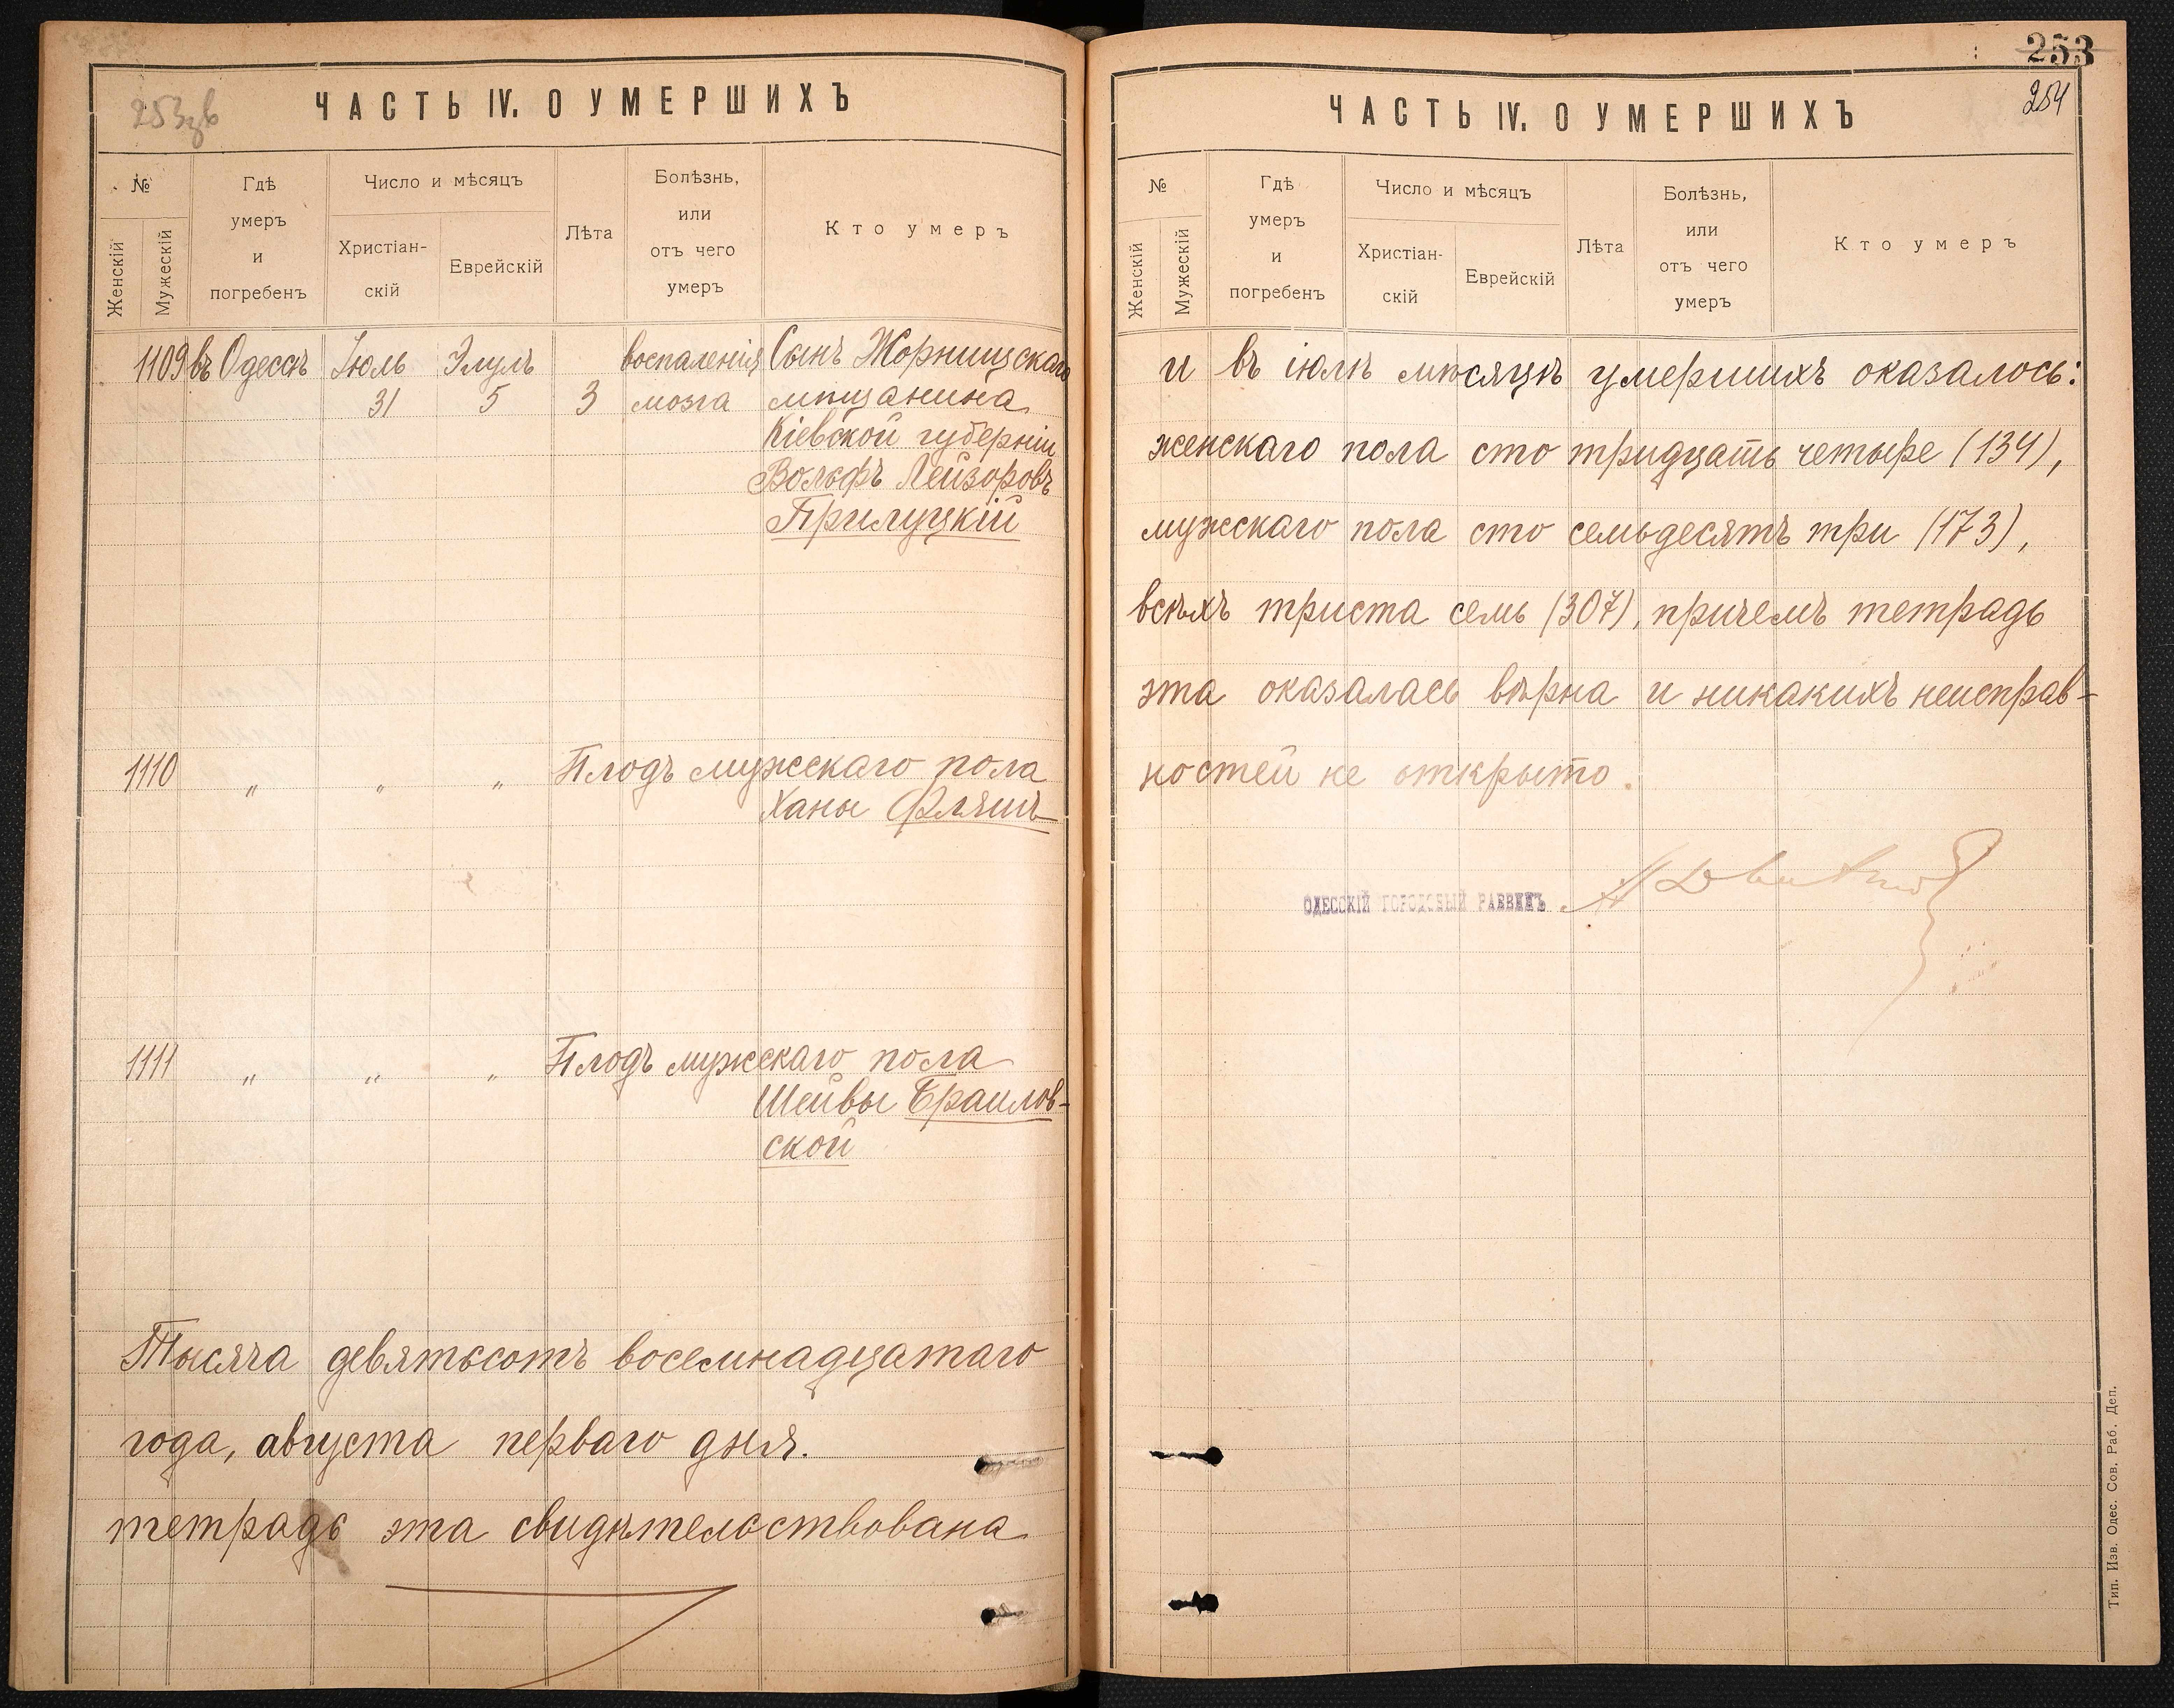 253зв
ЧАСТЬ IV. О УМЕРШИХЪ
№
Женскій
Мужескій
Гдѣ
умеръ
и
погребенъ
Число и мѣсяцъ
Христіан-
скій
Еврейскій
Лѣта
Болѣзнь,
или
отъ чего
умеръ
Кто умеръ
1109 въ Одессѣ Іюль Элулъ воспаленія Сынъ Жорнищскаго
31 5 3 мозга мѣщанина
Кіевской губерніи
Вольфъ Лейзоровъ
Прилуцкій
1110 " " " Плодъ мужескаго пола
Ханы Фляшъ
1111 " " " Плодъ мужескаго пола
Шейвы Браилов-
ской
Тысяча девятьсотъ восемнадцатаго
года, августа перваго дня.
тетрадь эта свидѣтельствована
253
254
ЧАСТЬ IV. О УМЕРШИХЪ
№
Женскій
Мужескій
Гдѣ
умеръ
и
погребенъ
Число и мѣсяцъ
Христіан-
скій
Еврейскій
Лѣта
Болѣзнь,
или
отъ чего
умеръ
Кто умеръ
и въ іюлѣ мѣсяцѣ умершихъ оказалось:
женскаго пола сто тридцать четыре (134),
мужскаго пола сто семьдесятъ три (173),
всѣхъ триста семь (307), причемъ тетрадь
эта оказалась вѣрна и никакихъ неисправ-
ностей не открыто.
ОДЕССКІЙ ГОРОДОВЫЙ РАВВИНЪ
Тип. Изв. Одес. Сов. Раб. Деп.